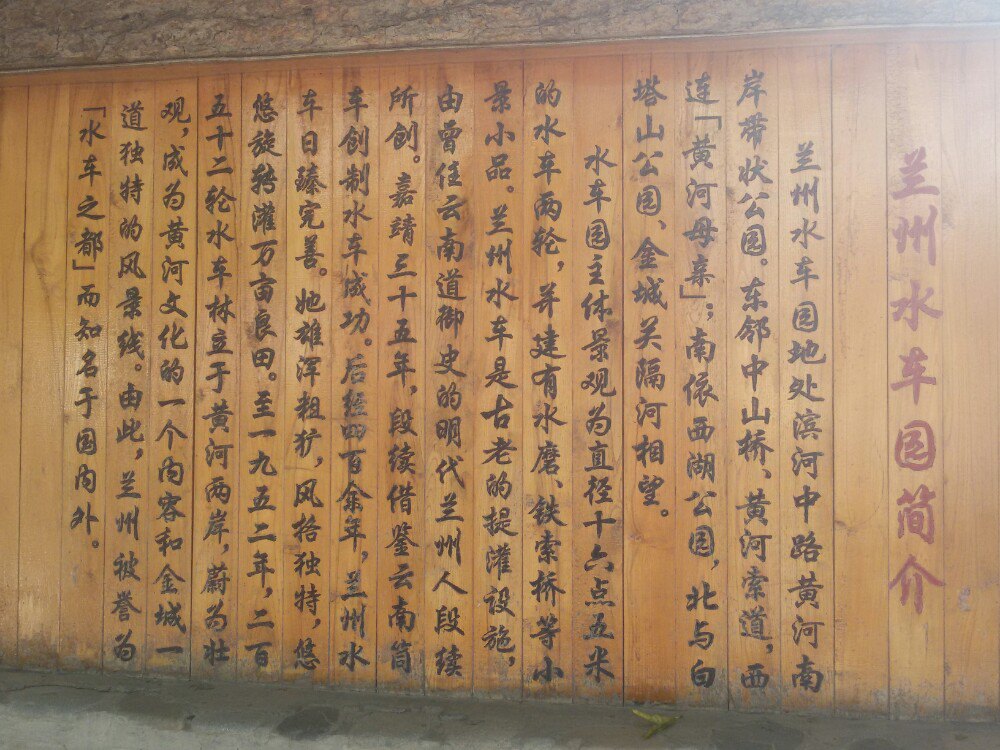 兰州水车园简介
兰州水车园地处滨河中路黄河南
岸带状公园。东邻中山桥、黄河索道，西
连「黄河母亲」；南依西湖公园，北与白
塔山公园、金城关隔河相望。
水车园主体景观为直径十六点五米
的水车两轮，并建有水磨、铁索桥等小
景小品。兰州水车是古老的提灌设施，
由曾任云南道御史的明代兰州人段续
所创。嘉靖三十五年，段续借鉴云南筒
车创制水车成功。后经四百余年，兰州水
车日臻完善。她雄浑粗犷，风格独特，悠
悠旋转灌万亩良田。至一九五二年，二百
五十二轮水车林立于黄河两岸，蔚为壮
观，成为黄河文化的一个内容和金城一
道独特的风景线。由此，兰州被誉为
「水车之都」而知名于国内外。